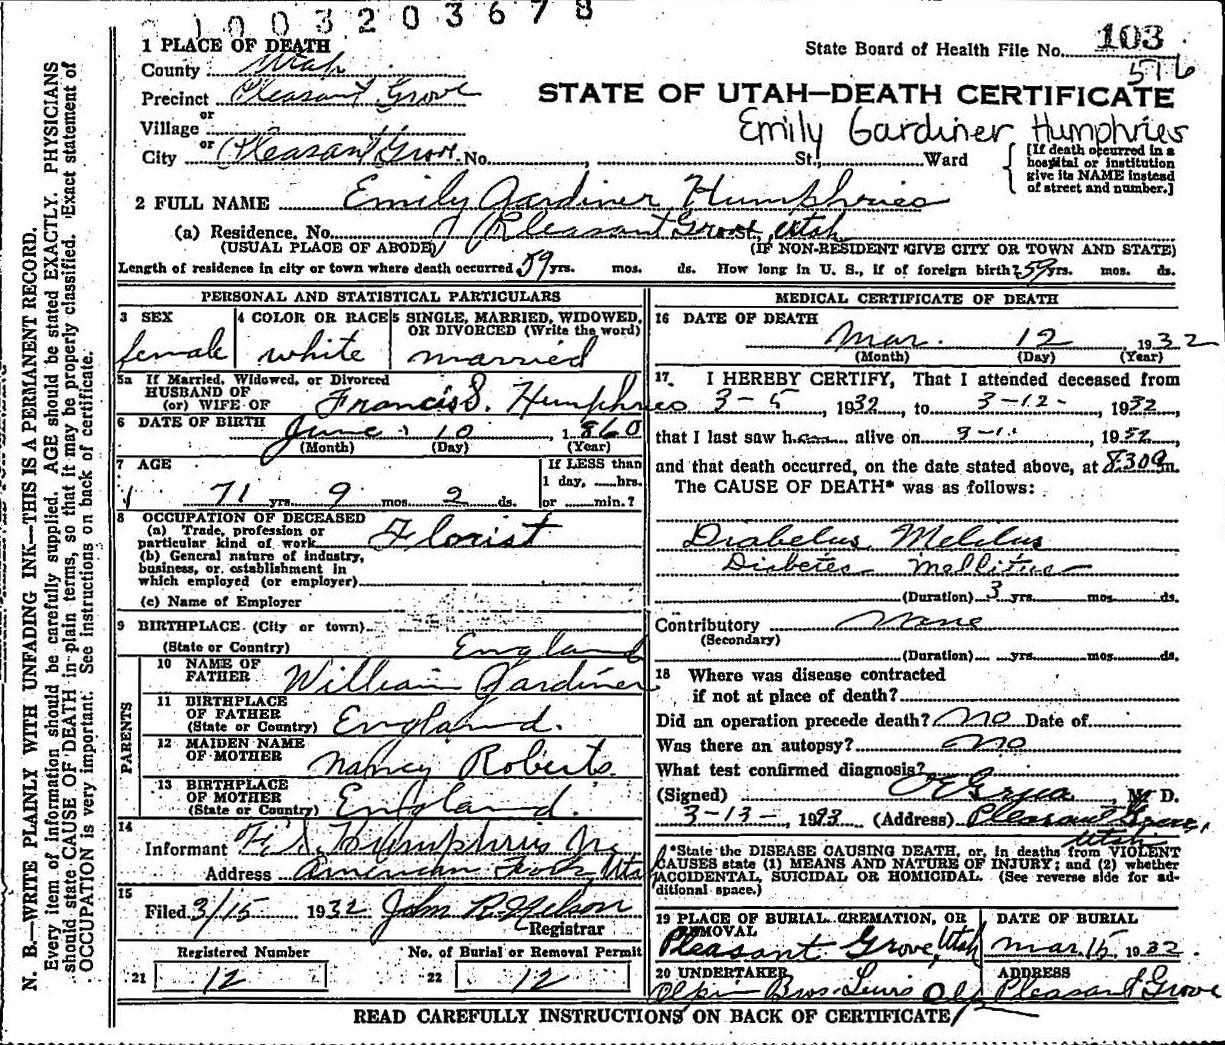 1003203678
1 PLACE OF DEATH
State Board of Health File No. 103
576
County Utah
Precinct Pleasant Grove
STATE OF UTAH—DEATH CERTIFICATE
or
Village
Emily Gardiner Humphries
or
City Pleasant Grove No. , St., Ward
[If death occurred in a hospital or institution give its NAME instead of street and number.]
2 FULL NAME Emily Gardiner Humphries
(a) Residence. No. Pleasant Grove, Utah
(USUAL PLACE OF ABODE) (IF NON-RESIDENT GIVE CITY OR TOWN AND STATE)
Length of residence in city or town where death occurred 59 yrs. mos. ds. How long in U. S., if of foreign birth? 59 yrs. mos. ds.
PERSONAL AND STATISTICAL PARTICULARS
3 SEX
female
4 COLOR OR RACE
white
5 SINGLE, MARRIED, WIDOWED, OR DIVORCED (Write the word)
married
5a If Married, Widowed, or Divorced
HUSBAND OF
(or) WIFE OF Francis S. Humphries
6 DATE OF BIRTH June 10, 1860
(Month) (Day) (Year)
7 AGE
71 yrs. 9 mos. 2 ds.
If LESS than
1 day, hrs.
or min.?
8 OCCUPATION OF DECEASED
(a) Trade, profession or
particular kind of work Florist
(b) General nature of industry,
business, or establishment in
which employed (or employer)
(c) Name of Employer
9 BIRTHPLACE (City or town)
(State or Country) England
PARENTS
10 NAME OF
FATHER William Gardiner
11 BIRTHPLACE
OF FATHER
(State or Country) England.
12 MAIDEN NAME
OF MOTHER Nancy Roberts.
13 BIRTHPLACE
OF MOTHER
(State or Country) England.
14
Informant F. S. Humphries Jr.
Address American Fork, Utah
15
Filed 3/15 1932 John R. Nelson
Registrar
Registered Number
21 12
No. of Burial or Removal Permit
22 12
MEDICAL CERTIFICATE OF DEATH
16 DATE OF DEATH
Mar. 12, 1932
(Month) (Day) (Year)
17 I HEREBY CERTIFY, That I attended deceased from
3-5, 1932, to 3-12-1932,
that I last saw h alive on , 19
and that death occurred, on the date stated above, at m.
The CAUSE OF DEATH* was as follows:
Diabetus Melitus
Diabetes Mellitus
(Duration) 3 yrs. mos. ds.
Contributory None
(Secondary)
(Duration) yrs. mos. ds.
18 Where was disease contracted
if not at place of death?
Did an operation precede death? No Date of
Was there an autopsy? No
What test confirmed diagnosis?
(Signed) M. D.
3-13-, 19 (Address) Pleasant Grove,
Utah
*State the DISEASE CAUSING DEATH, or, in deaths from VIOLENT
CAUSES state (1) MEANS AND NATURE OF INJURY; and (2) whether
ACCIDENTAL, SUICIDAL OR HOMICIDAL. (See reverse side for ad-
ditional space.)
19 PLACE OF BURIAL, CREMATION, OR
REMOVAL
Pleasant Grove, Utah
DATE OF BURIAL
Mar. 15, 1932
20 UNDERTAKER
Olpin Bros.
ADDRESS
Pleasant Grove
READ CAREFULLY INSTRUCTIONS ON BACK OF CERTIFICATE
N. B.—WRITE PLAINLY WITH UNFADING INK—THIS IS A PERMANENT RECORD.
Every item of information should be carefully supplied. AGE should be stated EXACTLY. PHYSICIANS
should state CAUSE OF DEATH in plain terms, so that it may be properly classified. Exact statement of
OCCUPATION is very important. See instructions on back of certificate.